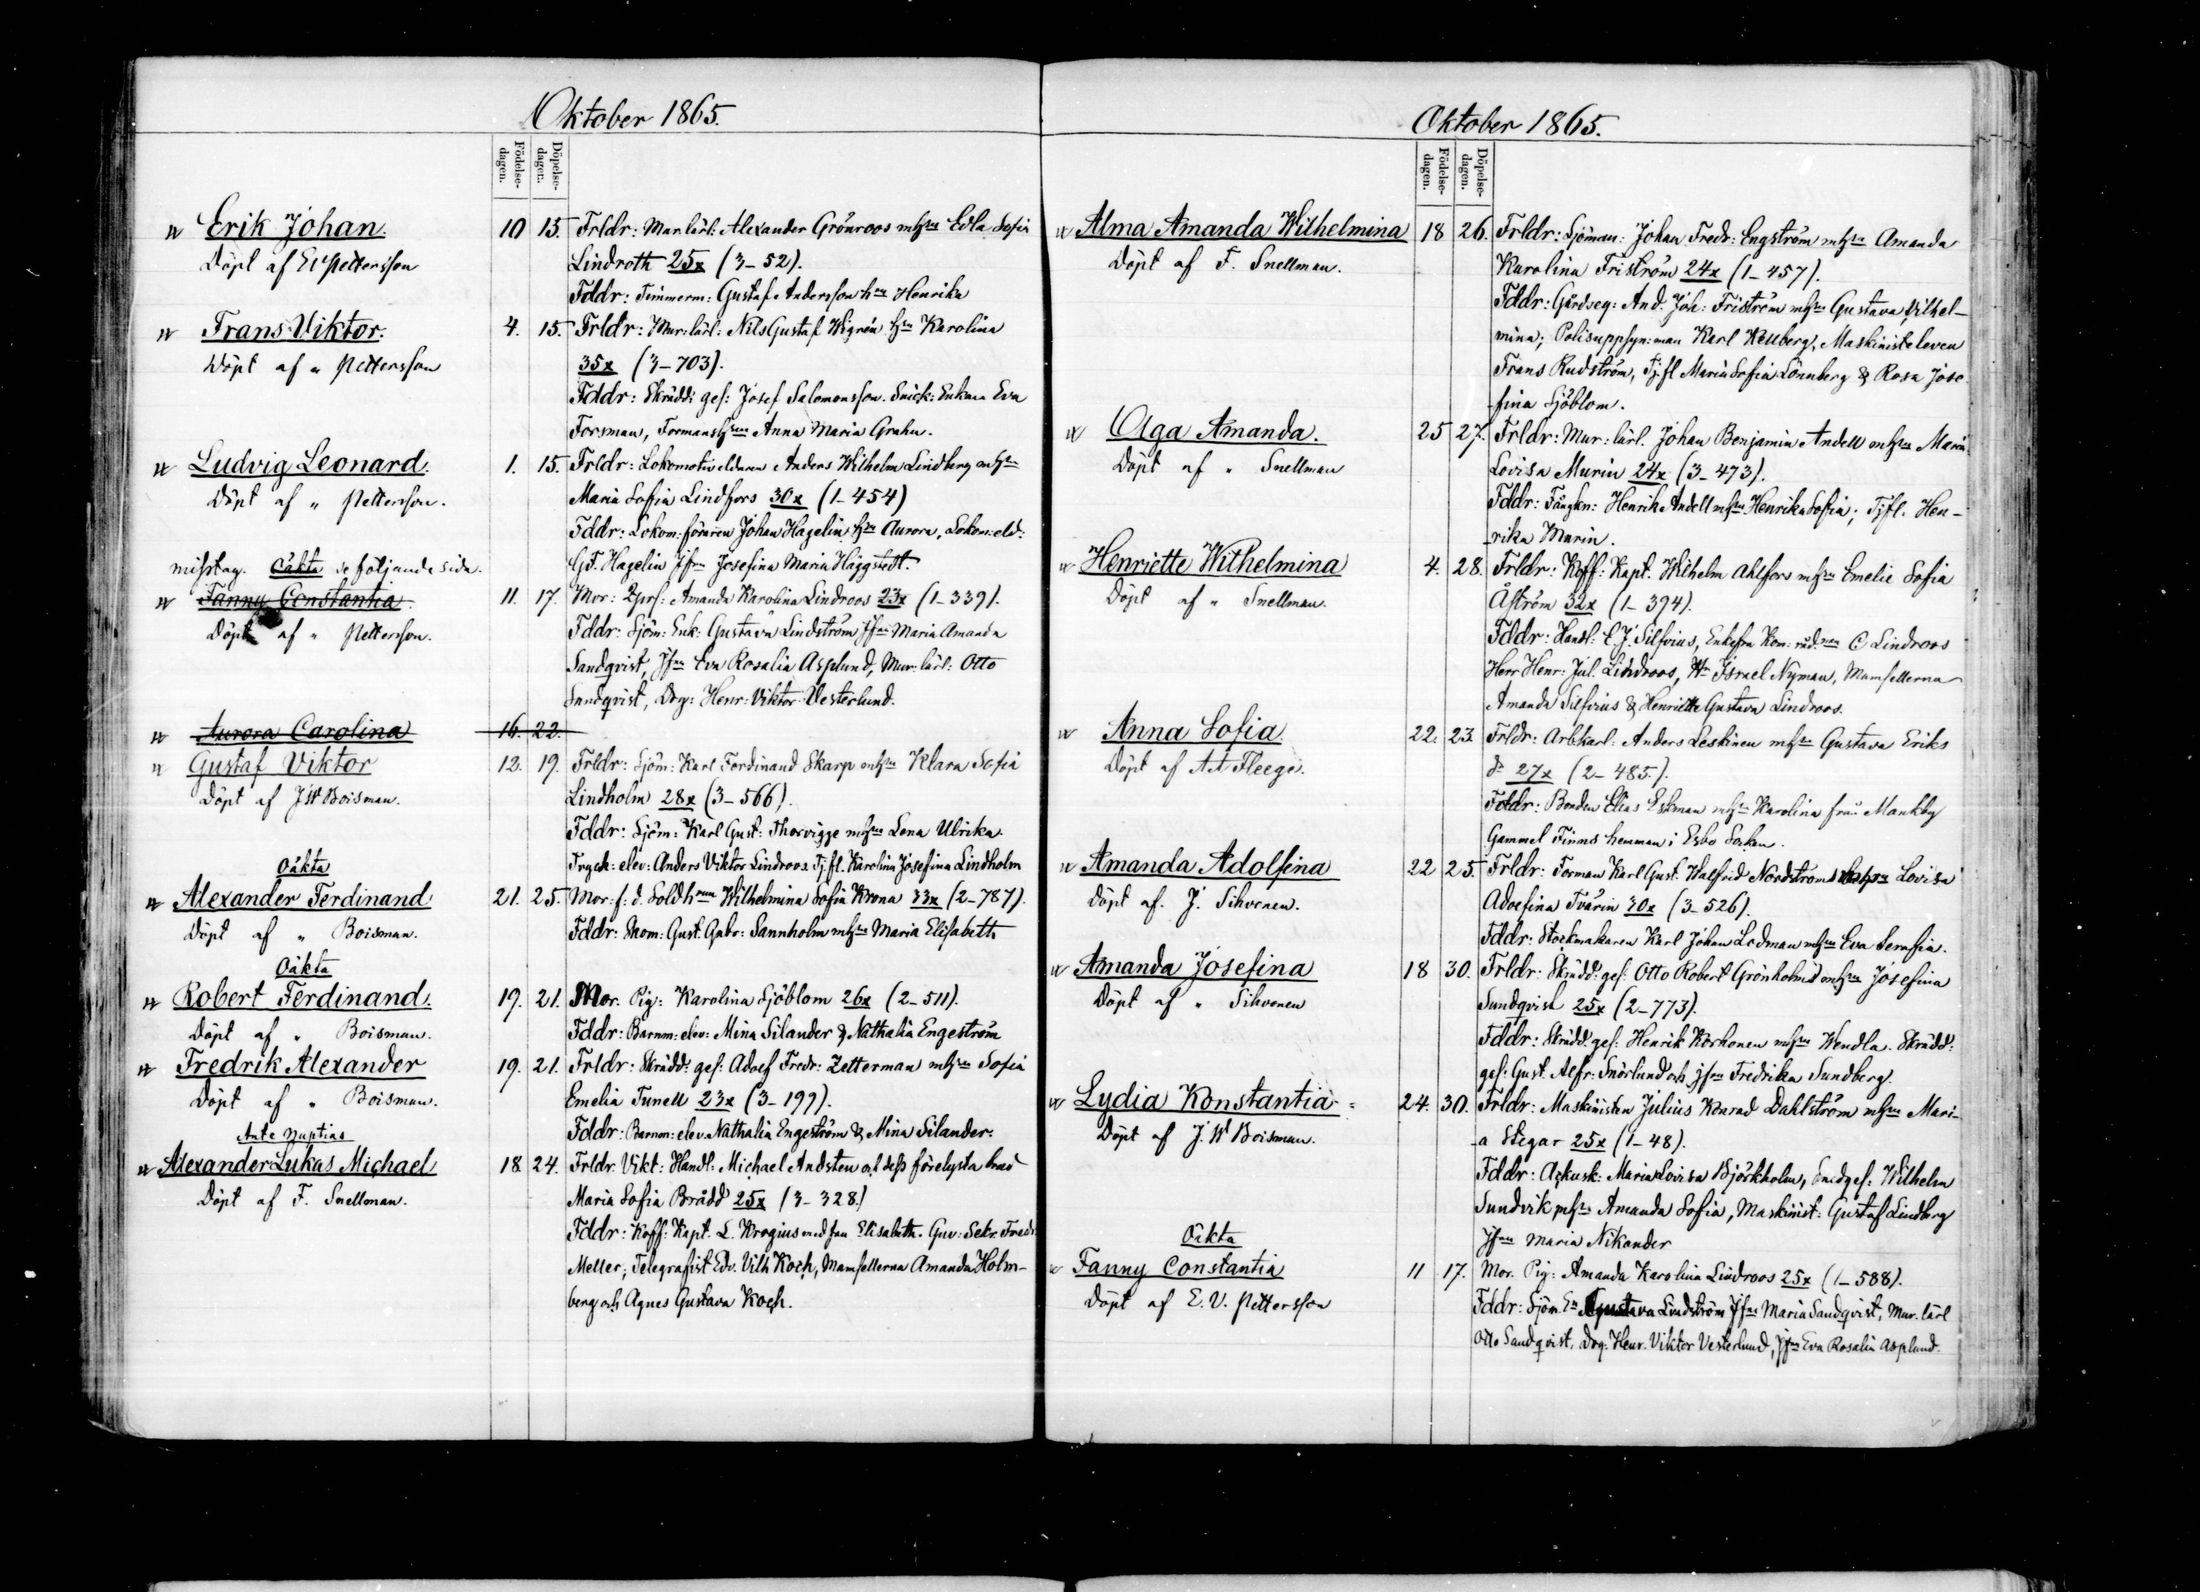 Oktober 1865.
Födelse-dagen.
Döpelse-dagen.
Erik Johan.
Döpt af EvPettersson
10 15. Frldr: Mur lärl: Alexander Grönroos mhru Edla Sofia
Lindroth 25x (3-52).
Fddr: Timmerm: Gustaf Andersson hru Henrika
Frans Viktor.
Döpt af " Pettersson
4. 15. Frldr: Mur: lärl: Nils Gustaf Wigrén hru Karolina
35x (3-703).
Fddr: Skrädd: ges: Josef Salomonsson. Snick: Enkan Eva
Forsman, Formanshrun Anna Maria Grahn.
Ludvig Leonard.
Döpt af " Pettersson.
1. 15. Frldr: Lokomotiv eldaren Anders Wilhelm Lindberg mhru
Maria Sofia Lindfors 30x (1-454)
Fddr: Lokom: föraren Johan Hagelin hru Aurora, Lokom: eld:
G.F. Hagelin Jfru Josefina Maria Häggstedt.
misstag. Oäkta se följande sida.
Fanny Constantia
Döpt af " Pettersson.
11. 17. Mor: Amanda Karolina Lindroos 23x (1-339).
Fddr: Sjöm: Enk: Gustava Lindström Jfru Maria Amanda
Sandqvist, Jfru Eva Rosalia Asplund, Mur: lärl: Otto
Sandqvist, Drg: Henr: Viktor Vesterlund.
Aurora Carolina 16. 22.
Gustaf Viktor
Döpt af J W Boisman.
12. 19. Frldr: Sjöm: Karl Ferdinand Skarp mhru Klara Sofia
Lindholm 28x (3-566).
Fddr: Sjöm: Karl Gust: Thorvigge mhru Lena Ulrika.
Tryck: elev: Anders Viktor Lindroos. Tj.fl. Karolina Josefina Lindholm
Oäkta
Alexander Ferdinand
Döpt af " Boisman.
21. 25. Mor: f: d. Soldhrun Wilhelmina Sofia Krona 33x (2-787).
Fddr: Skom: Gust. Gabr: Sannholm mhru Maria Elisabeth
Oäkta
Robert Ferdinand.
Döpt af " Boisman.
19. 21. Mor. Pig: Karolina Sjöblom 26x (2-511).
Fddr: Barnm: elev: Mina Silander & Nathalia Engeström
Fredrik Alexander
Döpt af " Boisman.
19. 21. Frldr: Skrädd: ges: Adolf Fredr: Zetterman mhru Sofia
Emelia Tunell 23x (3-199).
Fddr: Barnm: elev. Nathalia Engeström & Mina Silander.
Ante nuptias
Alexander Lukas Michael
Döpt af F. Snellman.
18. 24. Frldr. Vikt: Handl: Michael Andsten och dess förelysta brud
Maria Sofia Brådd 25x (3-328.)
Fddr: Koff: Kapt. L. Krogius med fru Elisabeth. Guv: Sekr. Fredr
Meller; Telegrafist Edv. Vilh Koch, Mamsellerna Amanda Holm-
berg och Agnes Gustava Koch.
Oktober 1865.
Födelse-dagen.
Döpelse-dagen.
Alma Amanda Wilhelmina
Döpt af F. Snellman.
18 26. Frldr: Sjöman: Johan Fredr: Engström mhru Amanda
Karolina Friström 24x (1-457).
Fddr: Gårdseg: And. Joh: Friström mhru Gustava Vilhel-
mina; Polisuppsyn: man Karl Hellberg, Maskinisteleven
Frans Rudström, Tj.fl Maria Sofia Lönnberg & Rosa Jose
-fina Sjöblom.
Olga Amanda.
Döpt af " Snellman
25 27. Frldr: Mur: lärl. Johan Benjamin Andell mhru Maria
Lovisa Murin 24x (3-473).
Fddr: Fångkn: Henrik Andell mhru Henrika Sofia; Tjfl. Hen-
-rika Murin.
Henriette Wilhelmina
Döpt af " Snellman.
4. 28. Frldr: Koff: Kapt. Wilhelm Ahlfors mhru Emelie Sofia
Åström 32x (1-394).
Fddr: Handl: E J. Silfvius, Enkefru Kom: råd:nan C Lindroos
Herr Henr: Jul. Lindroos, Hr Israel Nyman, Mamsellerna
Amanda Silfvius & Henriette Gustava Lindroos.
Anna Sofia
Döpt af A A Fleege.
22. 23. Frldr: Arbkarl: Anders Leskinen mhru Gustava Eriks
dr 27x (2-485.).
Fddr: Bonden Elias Eskman mhru Karolina från Mankby
Gammel Finns hemman i Esbo Socken.
Amanda Adolfina
Döpt af. J. Sihvonen.
22 25. Frldr: Forman Karl Gust. Walfrid Nordström Lovisa
Adolfina Tvärin 30x (3-526).
Fddr: Stockmakaren Karl Johan Lodman mhru Eva Serafia.
Amanda Josefina
Döpt af " Sihvonen
18 30. Frldr: Skrädd: ges: Otto Robert Grönholm mhru Josefina
Sundqvist 25x (2-773).
Fddr: Skrädd. ges: Henrik Korhonen mhru Wendla. Skrädd:
ges: Gust. Alfr: Snörlund och jfru Fredrika Sundberg.
Lydia Konstantia
Döpt af J. W Boisman.
24. 30. Frldr: Maskinisten Julius Konrad Dahlström mhru Mari-
-a Stegar 25x (1-48).
Fddr: Ackusk: Maria Lovisa Björkholm, Smedges: Wilhelm
Sundvik mhru Amanda Sofia, Maskinist: Gustaf Lindberg
Jfru Maria Nikander
Oäkta
Fanny Constantia
Döpt af E. V. Pettersson
11 17. Mor. Pig: Amanda Karolina Lindroos 25x (1-588).
Fddr: Sjöm. En Gustava Lindström Jfru Maria Sandqvist, Mur. lärl
Otto Sandqvist, Drg. Henr. Viktor Vesterlund, Jfru Eva Rosalia Asplund.